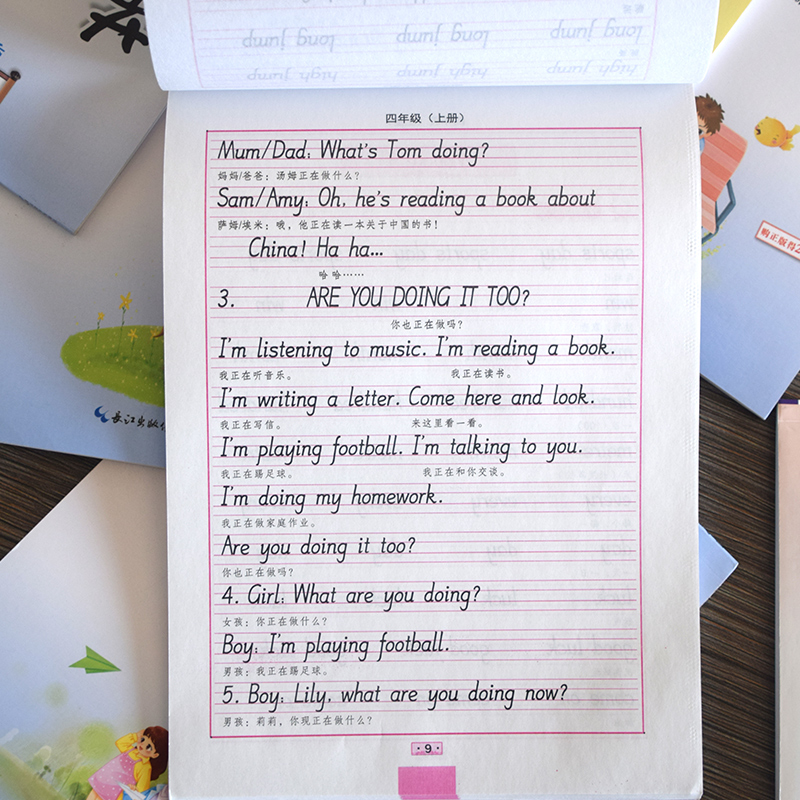 long jump long jump long jump
high jump high jump high jump
四年级（上册）
Mum/Dad: What's Tom doing?
妈妈/爸爸：汤姆正在做什么？
Sam/Amy: Oh, he's reading a book about
萨姆/埃米：哦，他正在读一本关于中国的书！
China! Ha ha...
哈哈……
3. ARE YOU DOING IT TOO?
你也正在做吗？
I'm listening to music. I'm reading a book.
我正在听音乐。 我正在读书。
I'm writing a letter. Come here and look.
我正在写信。 来这里看一看。
I'm playing football. I'm talking to you.
我正在踢足球。 我正在和你交谈。
I'm doing my homework.
我正在做家庭作业。
Are you doing it too?
你也正在做吗？
4. Girl: What are you doing?
女孩：你正在做什么？
Boy: I'm playing football.
男孩：我正在踢足球。
5. Boy: Lily, what are you doing now?
男孩：莉莉，你现正在做什么？
·9·
长江出版传
购正版得